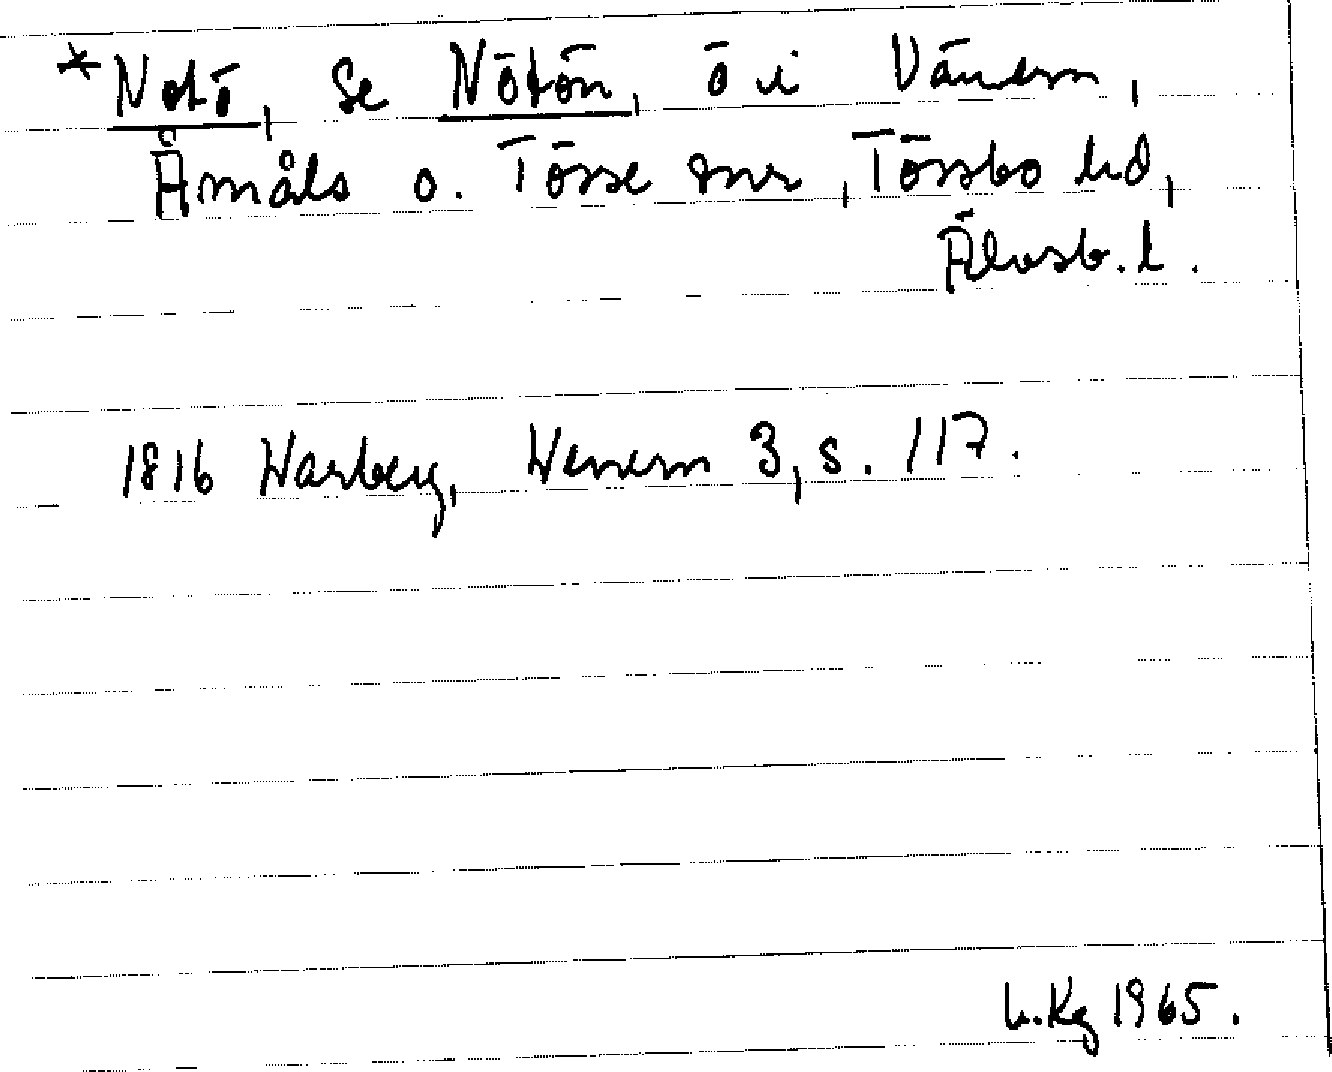 *Notö, se Nötön, ö i Vänern,
Åmåls o. Tösse snr, Tössbo hd,
Älvsb. l.
1816 Warberg, Wenern 3, s. 117.
L. Kg 1965.